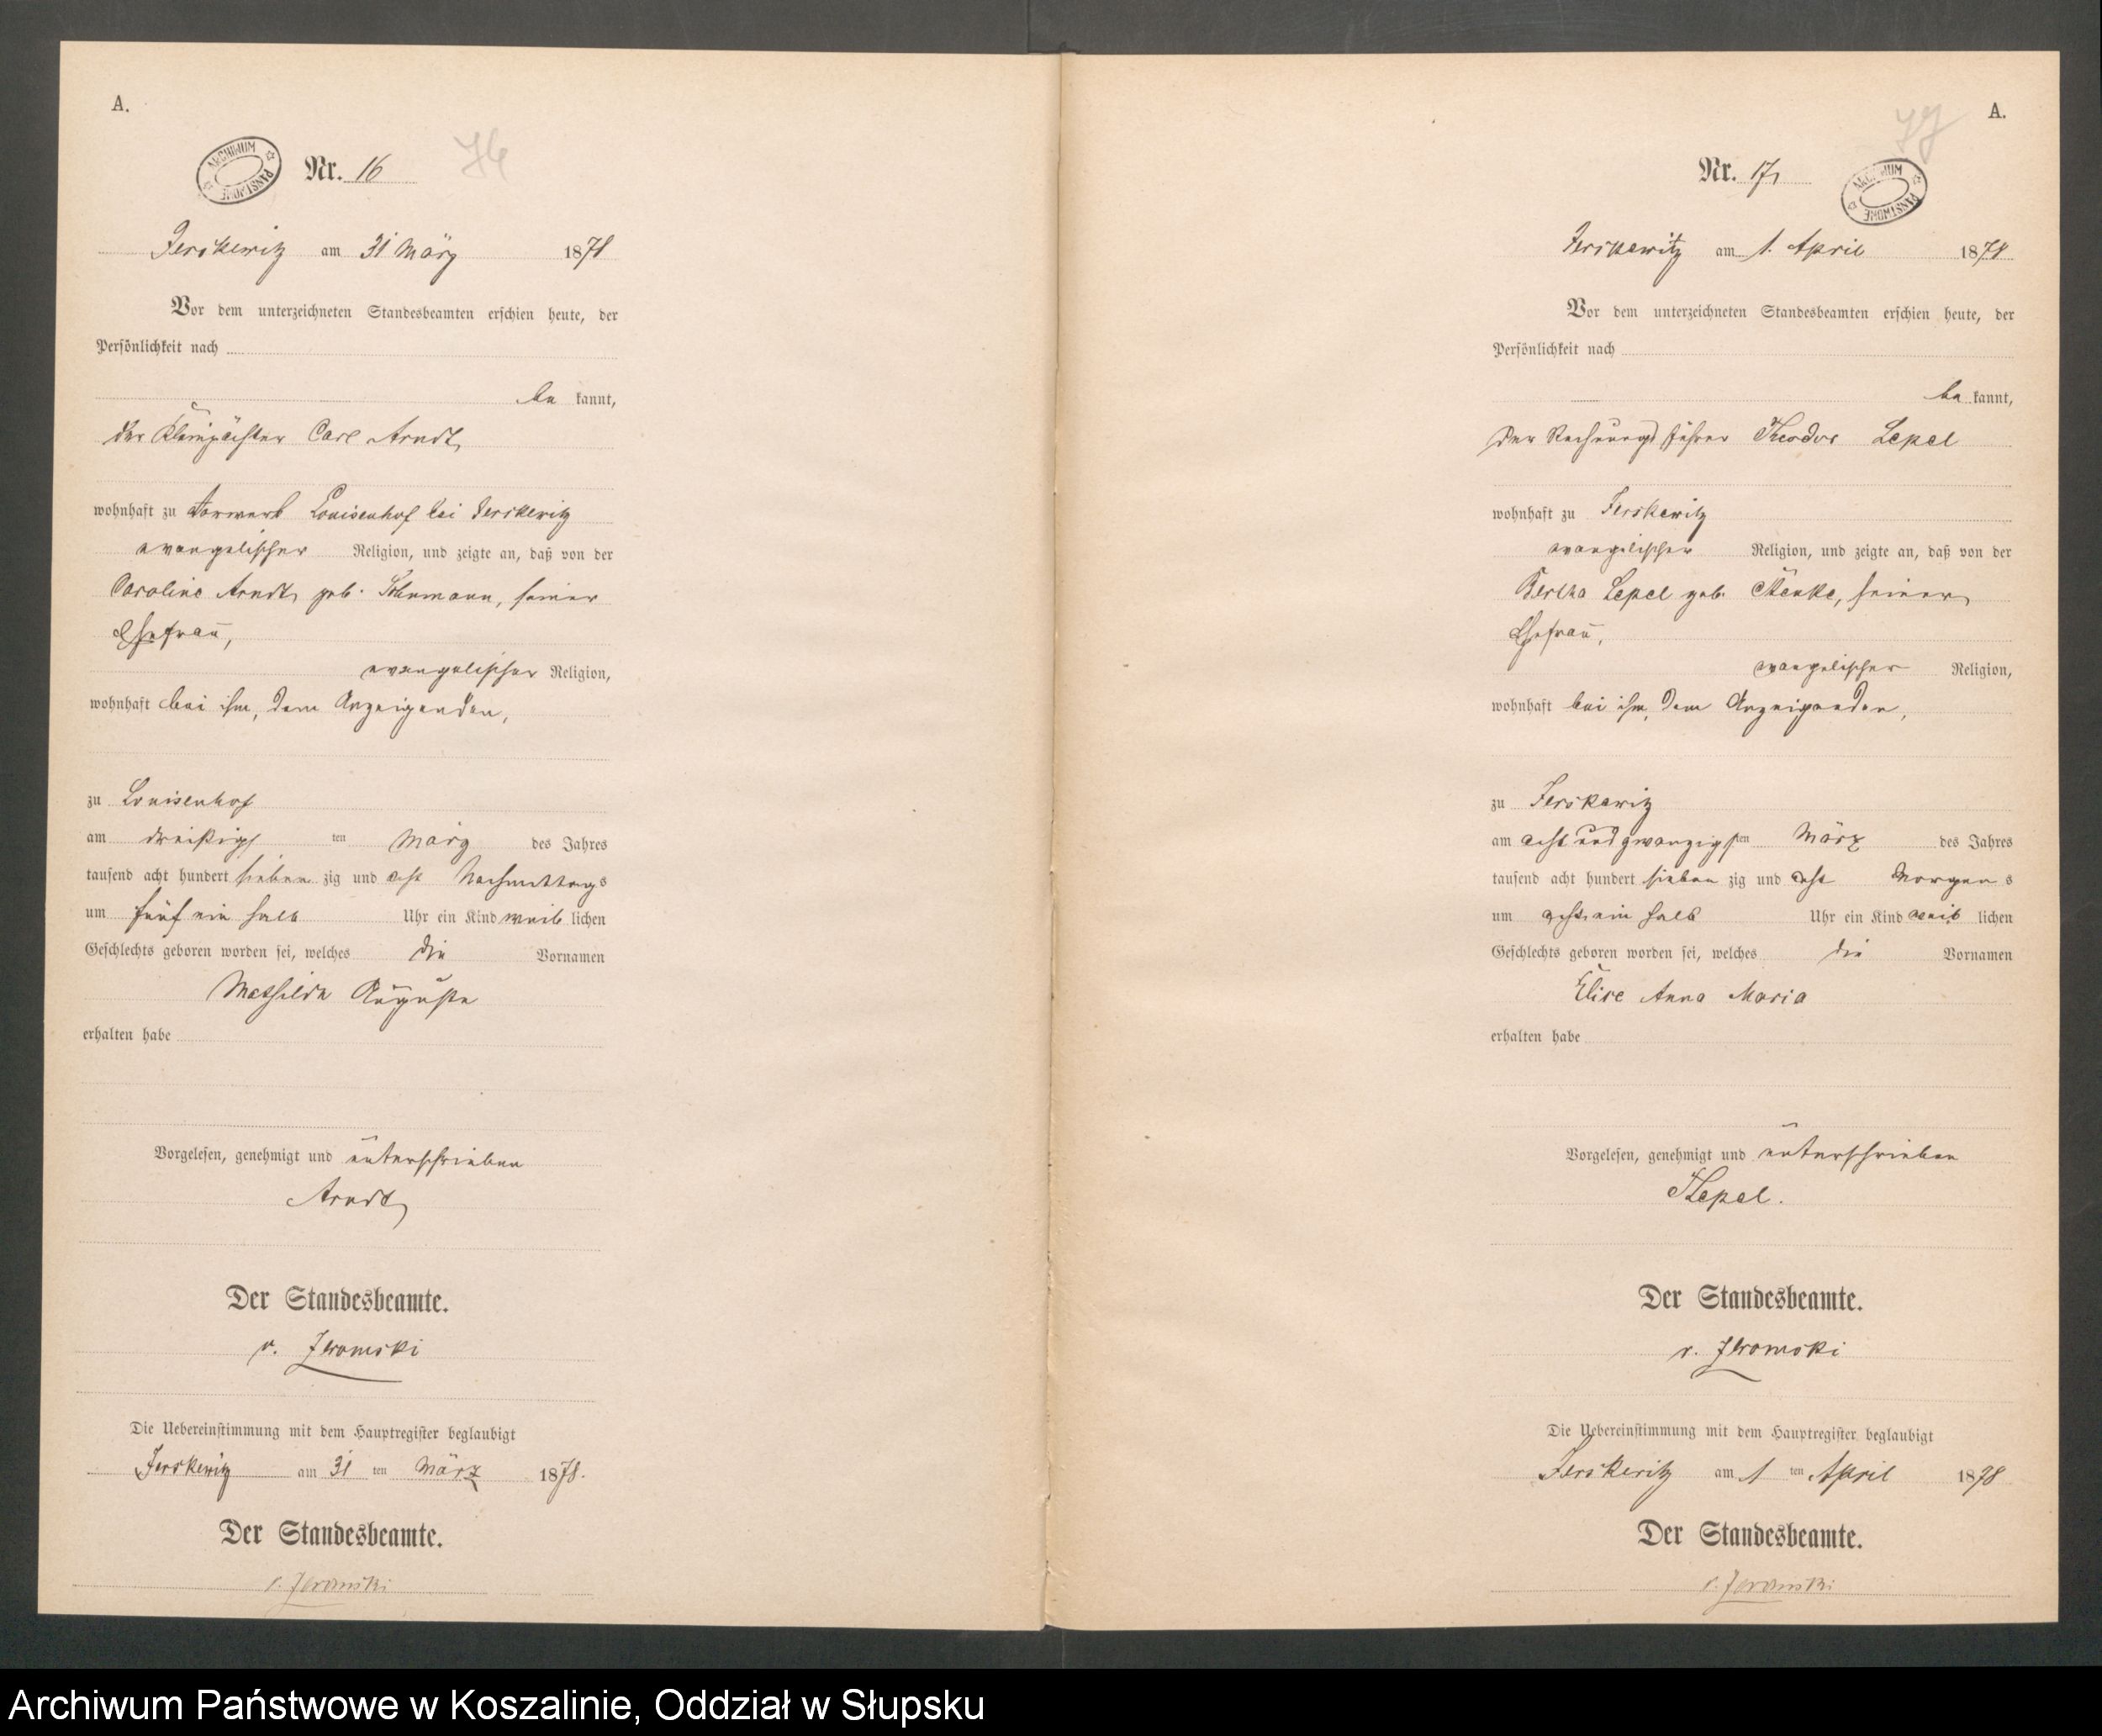 A.
ARCHIWUM PAŃSTWOWE
Nr. 16
Jerskewitz am 31 März 1878
Vor dem unterzeichneten Standesbeamten erschien heute, der
Persönlichkeit nach
be kannt,
der Kleinpächter Carl Arndt,
wohnhaft zu Vorwerk Louisenhof bei Jerskewitz
evangelischer Religion, und zeigte an, daß von der
Caroline Arndt, geb. seiner
Ehefrau,
evangelischer Religion,
wohnhaft bei ihm, dem Anzeigenden,
zu Louisenhof
am dreißigs ten März des Jahres
tausend acht hundert sieben zig und acht Nachmittags
um fünf ein halb Uhr ein Kind weib lichen
Geschlechts geboren worden sei, welches die Vornamen
Mathilde Auguste
erhalten habe
Vorgelesen, genehmigt und unterschrieben
Arndt
Der Standesbeamte.
v. Zeromski
Die Uebereinstimmung mit dem Hauptregister beglaubigt
Jerskewitz am 31 ten März 1878.
Der Standesbeamte.
v. Zeromski
A.
Nr. 17
ARCHIWUM PAŃSTWOWE
Jerskewitz am 1. April 1878
Vor dem unterzeichneten Standesbeamten erschien heute, der
Persönlichkeit nach
be kannt,
der Rechnungsführer Theodor Lepel
wohnhaft zu Jerskewitz
evangelischer Religion, und zeigte an, daß von der
Bertha Lepel geb. seiner
Ehefrau,
evangelischer Religion,
wohnhaft bei ihm, dem Anzeigenden,
zu Jerskewitz
am acht und zwanzigs ten März des Jahres
tausend acht hundert sieben zig und acht Morgens
um acht ein halb Uhr ein Kind weib lichen
Geschlechts geboren worden sei, welches die Vornamen
Elise Anna Maria
erhalten habe
Vorgelesen, genehmigt und unterschrieben
Lepel.
Der Standesbeamte.
v. Zeromski
Die Uebereinstimmung mit dem Hauptregister beglaubigt
Jerskewitz am 1 ten April 1878
Der Standesbeamte.
v. Zeromski
Archiwum Państwowe w Koszalinie, Oddział w Słupsku